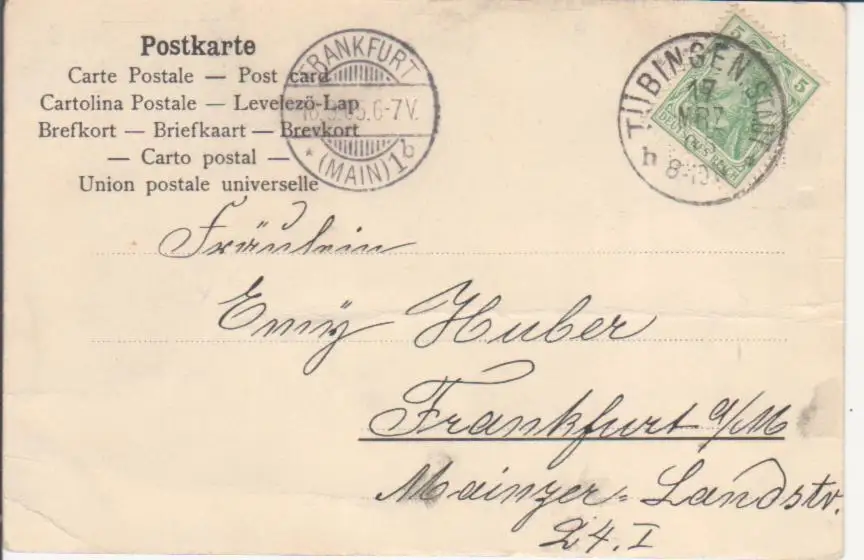 Postkarte
Carte Postale — Post card
Cartolina Postale — Levelező-Lap
Brefkort — Briefkaart — Brevkort
— Carto postal —
Union postale universelle
FRANKFURT
6-7V.
* (MAIN) 1
TÜBINGEN STADT
17
MRZ
h 8-
5
5
DEUTSCHES REICH
Fräulein
Emÿ Huber
Frankfurt a/M
Mainzer-Landstr.
24. I